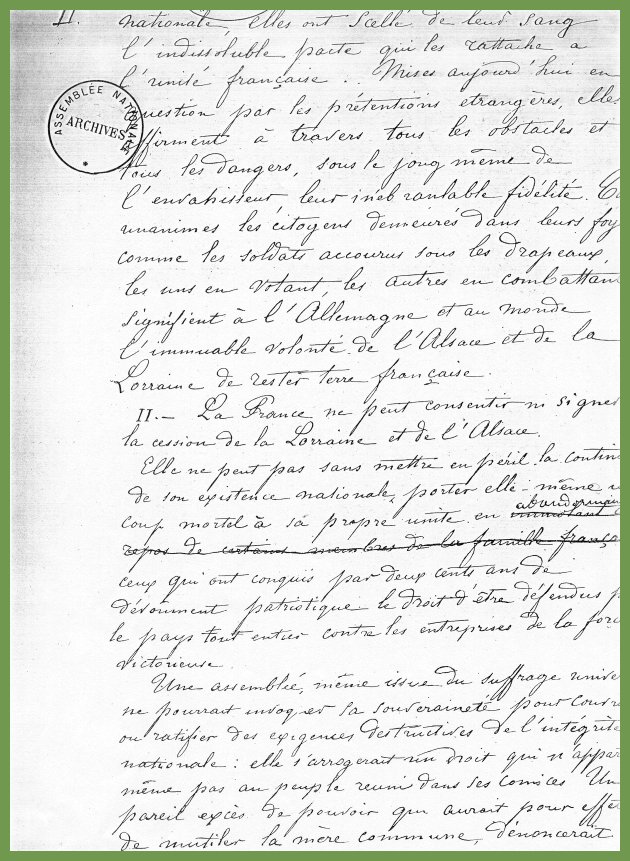 II.
nationale, elles ont scellé de leur sang
l'indissoluble pacte qui les rattache a
l'unité française .. Mises aujourd'hui en
question par les prétentions etrangères, elles
ffirment à travers tous les obstacles et
tous les dangers, sous le joug même de
l'envahisseur leur inebranlable fidélité.
unanimes les citoyens demeurés dans leurs foy
comme les soldats accourus sous les drapeaux,
les uns en votant, les autres en combattan
signifient à l'Allemagne et au monde
l'immuable volonté de l'Alsace et de la
Lorraine de rester terre française.
II.- La France ne peut consentir ni signer
la cession de la Lorraine et de l'Alsace.
Elle ne peut pas sans mettre en péril la contin
de son existence nationale, porter elle-même u
coup mortel à sa propre unité en abandonnan
repos de certains membres de la famille franço
ceux qui ont conquis par deux cents ans de
dévouement patriotique le droit d'être défendus p
le pays tout entier contre les entreprises de la for
victorieuse.
Une assemblée, même issue du suffrage unive
ne pourrait invoquer sa souveraineté pour couvr
ou ratifier des exigences destructives de l'intégrité
nationale : elle s'arrogerait un droit qui n'appar
même pas au peuple reuni dans ses comices Un
pareil excès de pouvoir qui aurait pour effet
de mutiler la mère commune, dénoncerait
ASSEMBLÉE NATIONALE
ARCHIVES
*